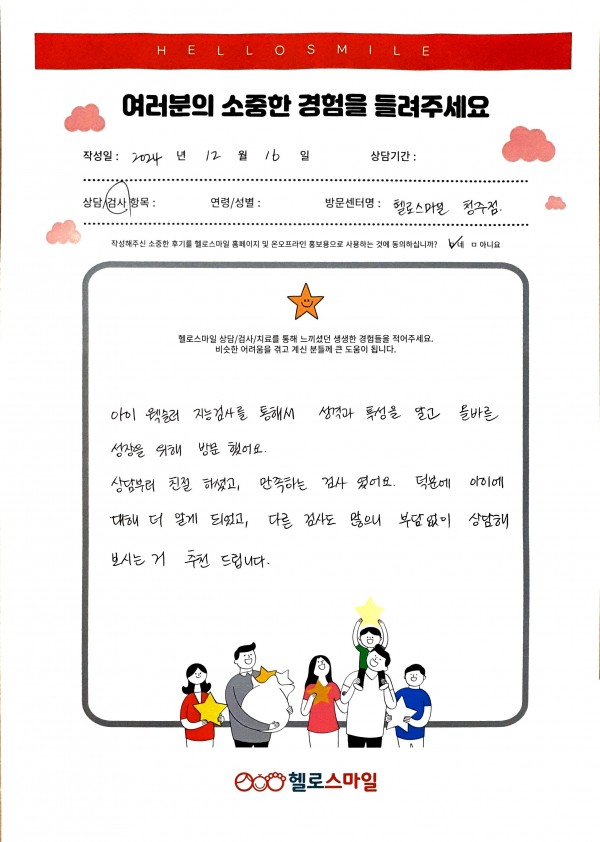 HELLOSMILE
여러분의 소중한 경험을 들려주세요
작성일 : 2024 년 12 월 16 일 상담기간 :
상담/검사 항목 : 연령/성별 : 방문센터명 : 헬로스마일 청주점.
작성해주신 소중한 후기를 헬로스마일 홈페이지 및 온오프라인 홍보용으로 사용하는 것에 동의하십니까? ☑네 ㅁ아니요
헬로스마일 상담/검사/치료를 통해 느끼셨던 생생한 경험들을 적어주세요.
비슷한 어려움을 겪고 계신 분들께 큰 도움이 됩니다.
아이 웩슬러 지능검사를 통해서 성격과 특성을 알고 올바른
성장을 위해 방문 했어요.
상담부터 친절 하셨고, 만족하는 검사 였어요. 덕분에 아이에
대해 더 알게 되었고, 다른 검사도 많으니 부담없이 상담해
보시는 거 추천 드립니다.
헬로스마일